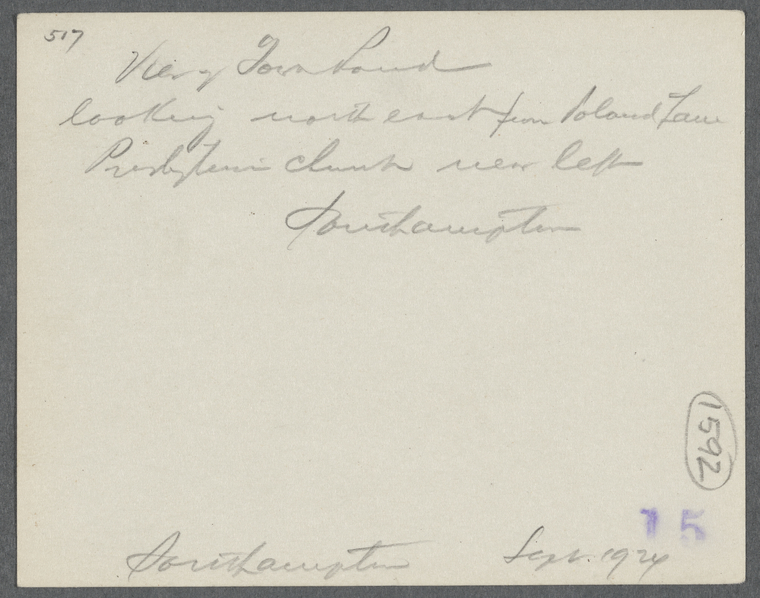 517
View of Town Pond
looking north east from Toland Lane
Presbyterian Church near left
Southampton
1592
15
Southampton Sept. 1924